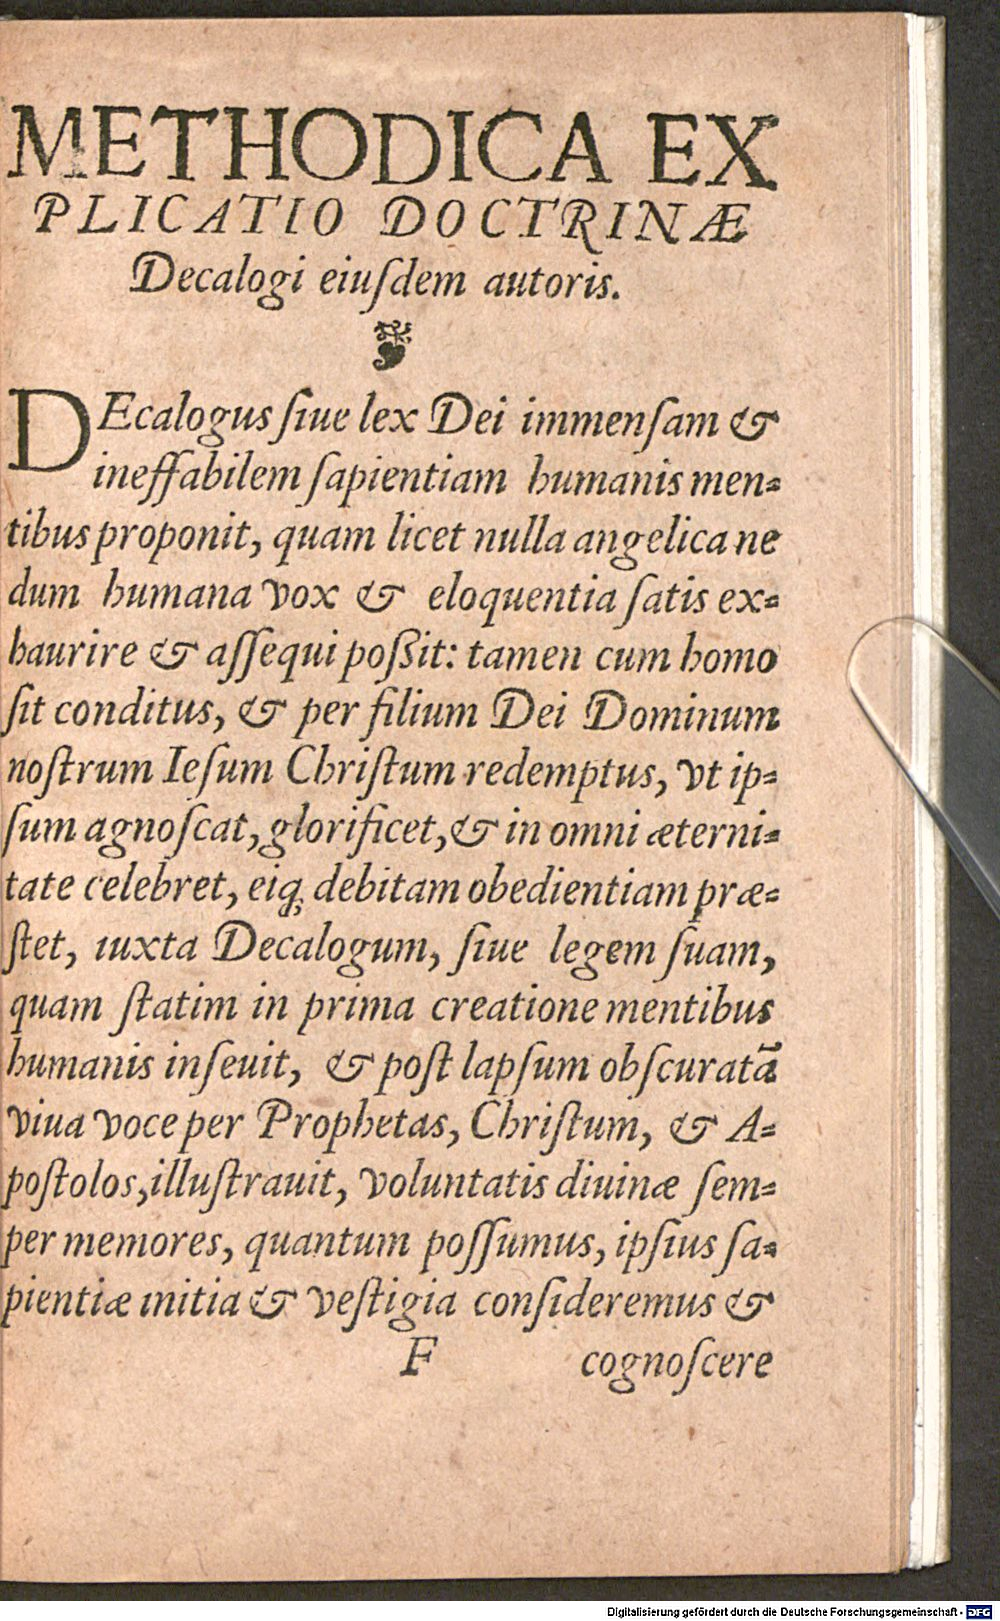 METHODICA EX
PLICATIO DOCTRINÆ
Decalogi eiuſdem autoris.
DEcalogus ſiue lex Dei immenſam &
ineffabilem ſapientiam humanis men-
tibus proponit, quam licet nulla angelica ne
dum humana vox & eloquentia ſatis ex-
haurire & aſſequi poßit: tamen cum homo
ſit conditus, & per filium Dei Dominum
noſtrum Ieſum Chriſtum redemptus, vt ip-
ſum agnoſcat, glorificet, & in omni æterni-
tate celebret, eiq́; debitam obedientiam præ-
ſtet, iuxta Decalogum, ſiue legem ſuam,
quam ſtatim in prima creatione mentibus
humanis inſeuit, & poſt lapſum obſcuratã
viua voce per Prophetas, Chriſtum, & A-
poſtolos, illuſtrauit, voluntatis diuinæ ſem-
per memores, quantum poſſumus, ipſius ſa-
pientiæ initia & veſtigia conſideremus &
F cognoſcere
Digitalisierung gefördert durch die Deutsche Forschungsgemeinschaft - DFG